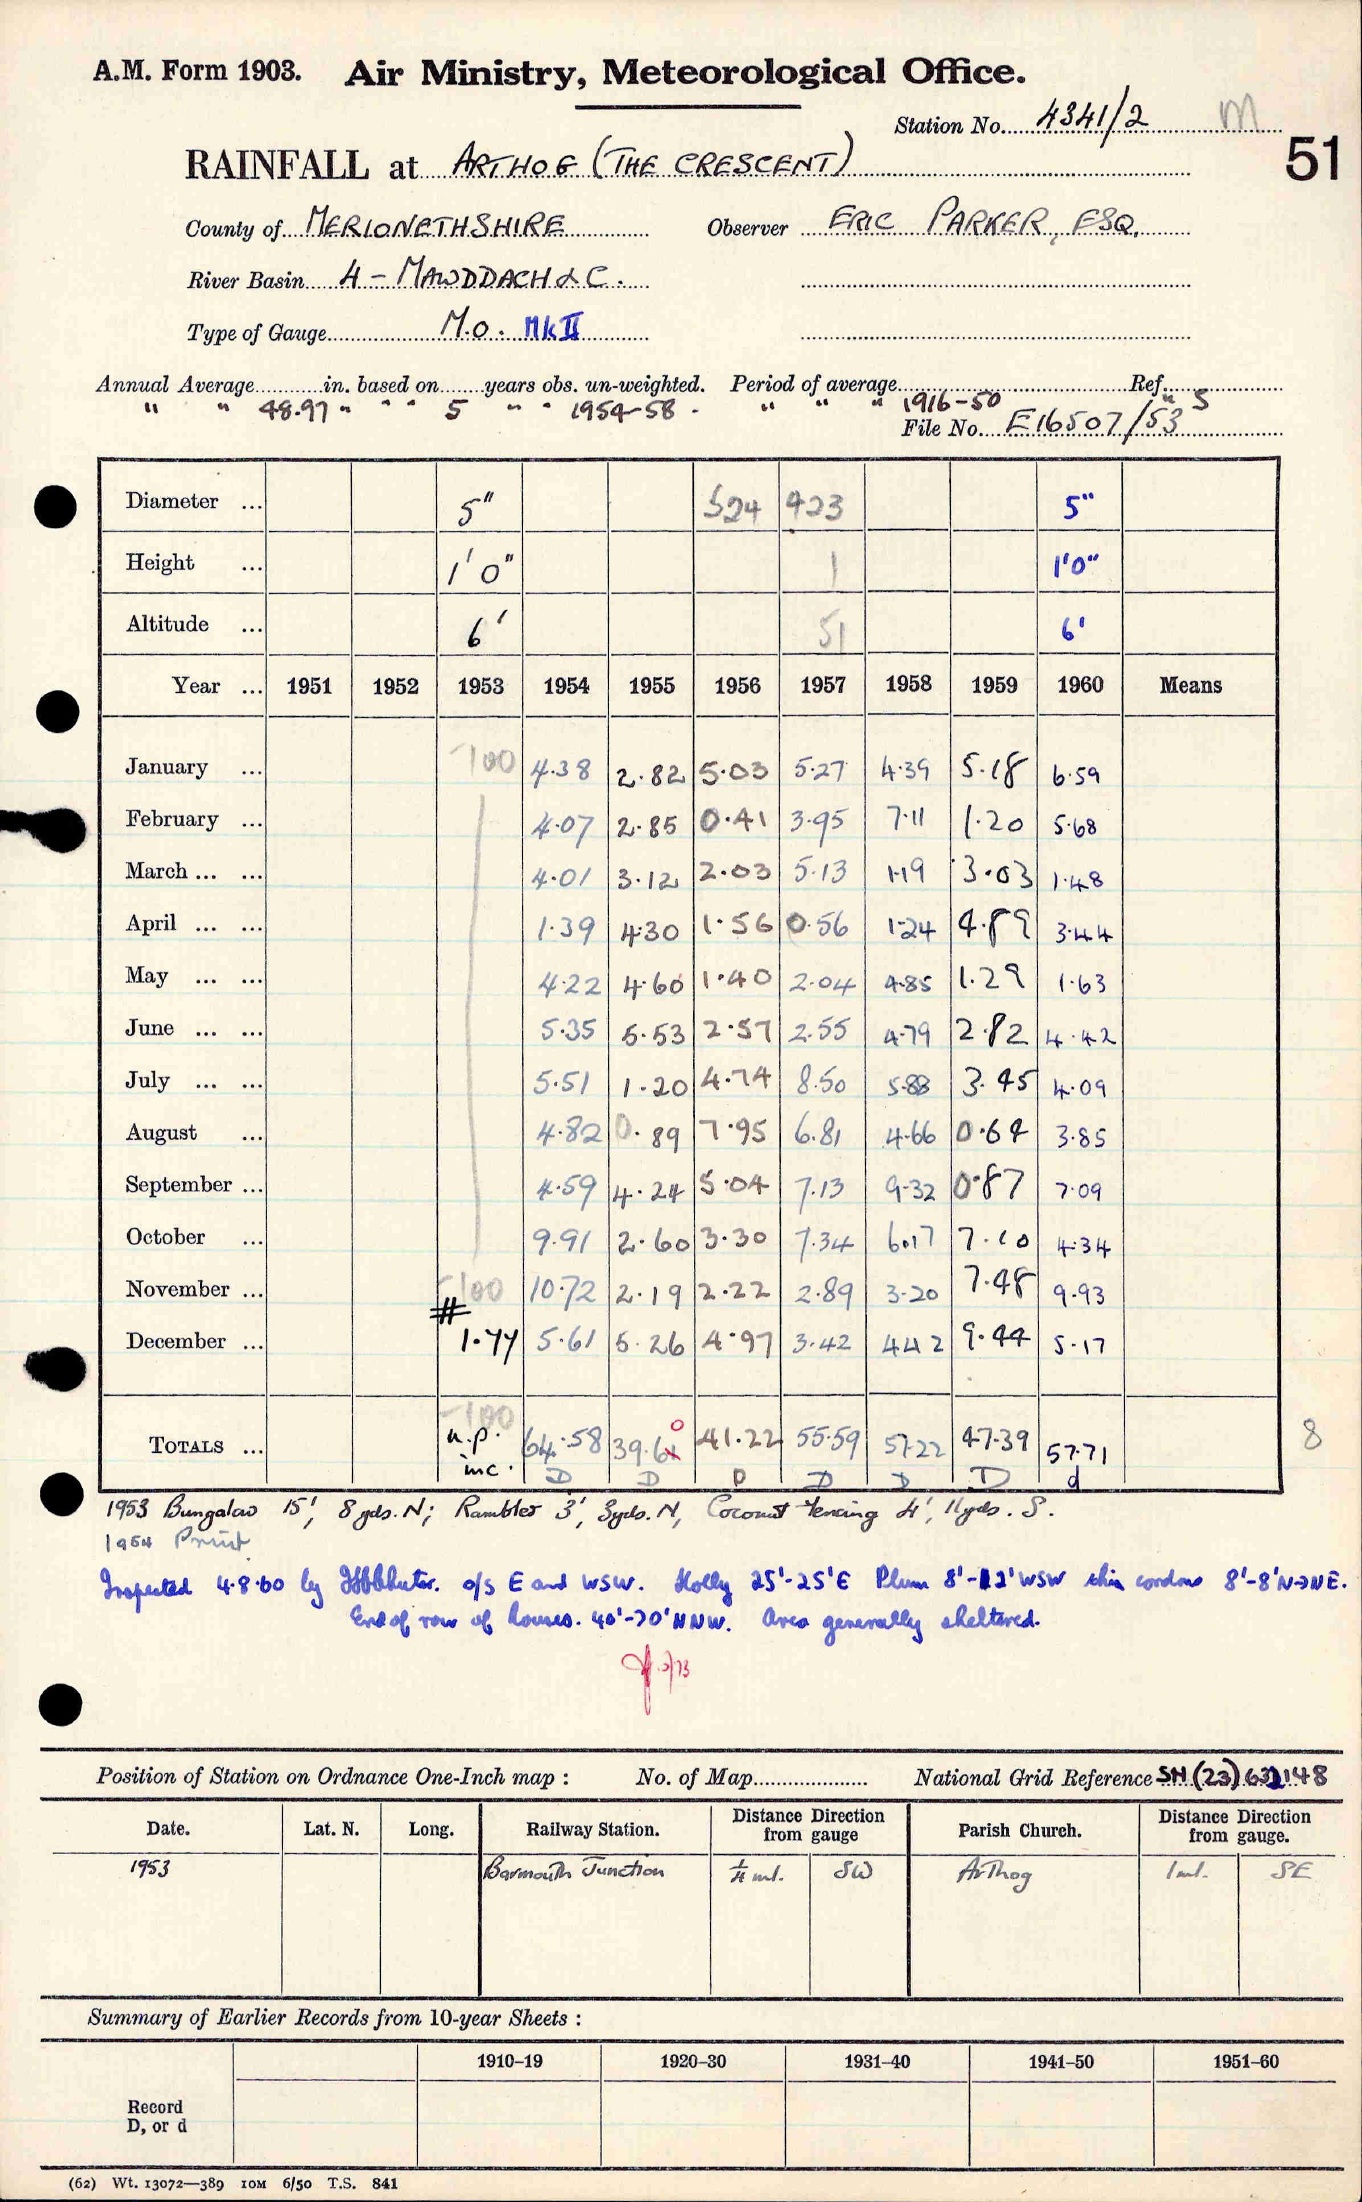 A.M. Form 1903. Air Ministry, Meteorological Office.
Station No. 4341/2 M
51
RAINFALL at ARTHOG (THE CRESCENT)
County of MERIONETHSHIRE Observer ERIC PARKER, ESQ.
River Basin 4 - MAWDDACH &C.
Type of Gauge M.O. Mk II
Annual Average in. based on years obs. un-weighted. Period of average Ref.
" " 48.97 " " " 5 " " 1954-58 - " " " 1916-50 " S
File No. E16507/53
Diameter ... 5" 524 423 5"
Height ... 1' 0" 1 1'0"
Altitude ... 6' 51 6'
Year ... 1951 1952 1953 1954 1955 1956 1957 1958 1959 1960 Means
January ... -100 4.38 2.82 5.03 5.27 4.39 5.18 6.59
February ... 4.07 2.85 0.41 3.95 7.11 1.20 5.68
March ... ... 4.01 3.12 2.03 5.13 1.19 3.03 1.48
April ... ... 1.39 4.30 1.56 0.56 1.24 4.89 3.44
May ... ... 4.22 4.60 1.40 2.04 4.85 1.29 1.63
June ... ... 5.35 5.53 2.57 2.55 4.79 2.82 4.42
July ... ... 5.51 1.20 4.74 8.50 5.88 3.45 4.09
August ... 4.82 0.89 7.95 6.81 4.66 0.64 3.85
September ... 4.59 4.24 5.04 7.13 9.32 0.87 7.09
October ... 9.91 2.60 3.30 7.34 6.17 7.10 4.34
November ... -100 10.72 2.19 2.22 2.89 3.20 7.48 9.93
December ... # 1.77 5.61 5.26 4.97 3.42 4.42 9.44 5.17
-100 0
TOTALS ... n.p. 64.58 39.61 41.22 55.59 57.22 47.39 57.71 8
inc. D D D D D D d
1953 Bungalow 15', 8yds. N; Rambler 3', 3yds. N, Coconut Fencing 4', 11yds. S.
1954 Print
Inspected 4.8.60 by o/s E and WSW. Holly 25'-25'E Plum 8'-12'WSW thin cordons 8'-8'N-NE.
End of row of houses. 40'-70'NNW. Area generally sheltered.
Position of Station on Ordnance One-Inch map : No. of Map National Grid Reference SH (23) 632148
Date. Lat. N. Long. Railway Station. Distance Direction from gauge Parish Church. Distance Direction from gauge.
1953 Barmouth Junction 1/4 ml. SW Arthog 1 ml. SE
Summary of Earlier Records from 10-year Sheets :
1910-19 1920-30 1931-40 1941-50 1951-60
Record
D, or d
(62) Wt. 13072—389 10M 6/50 T.S. 841